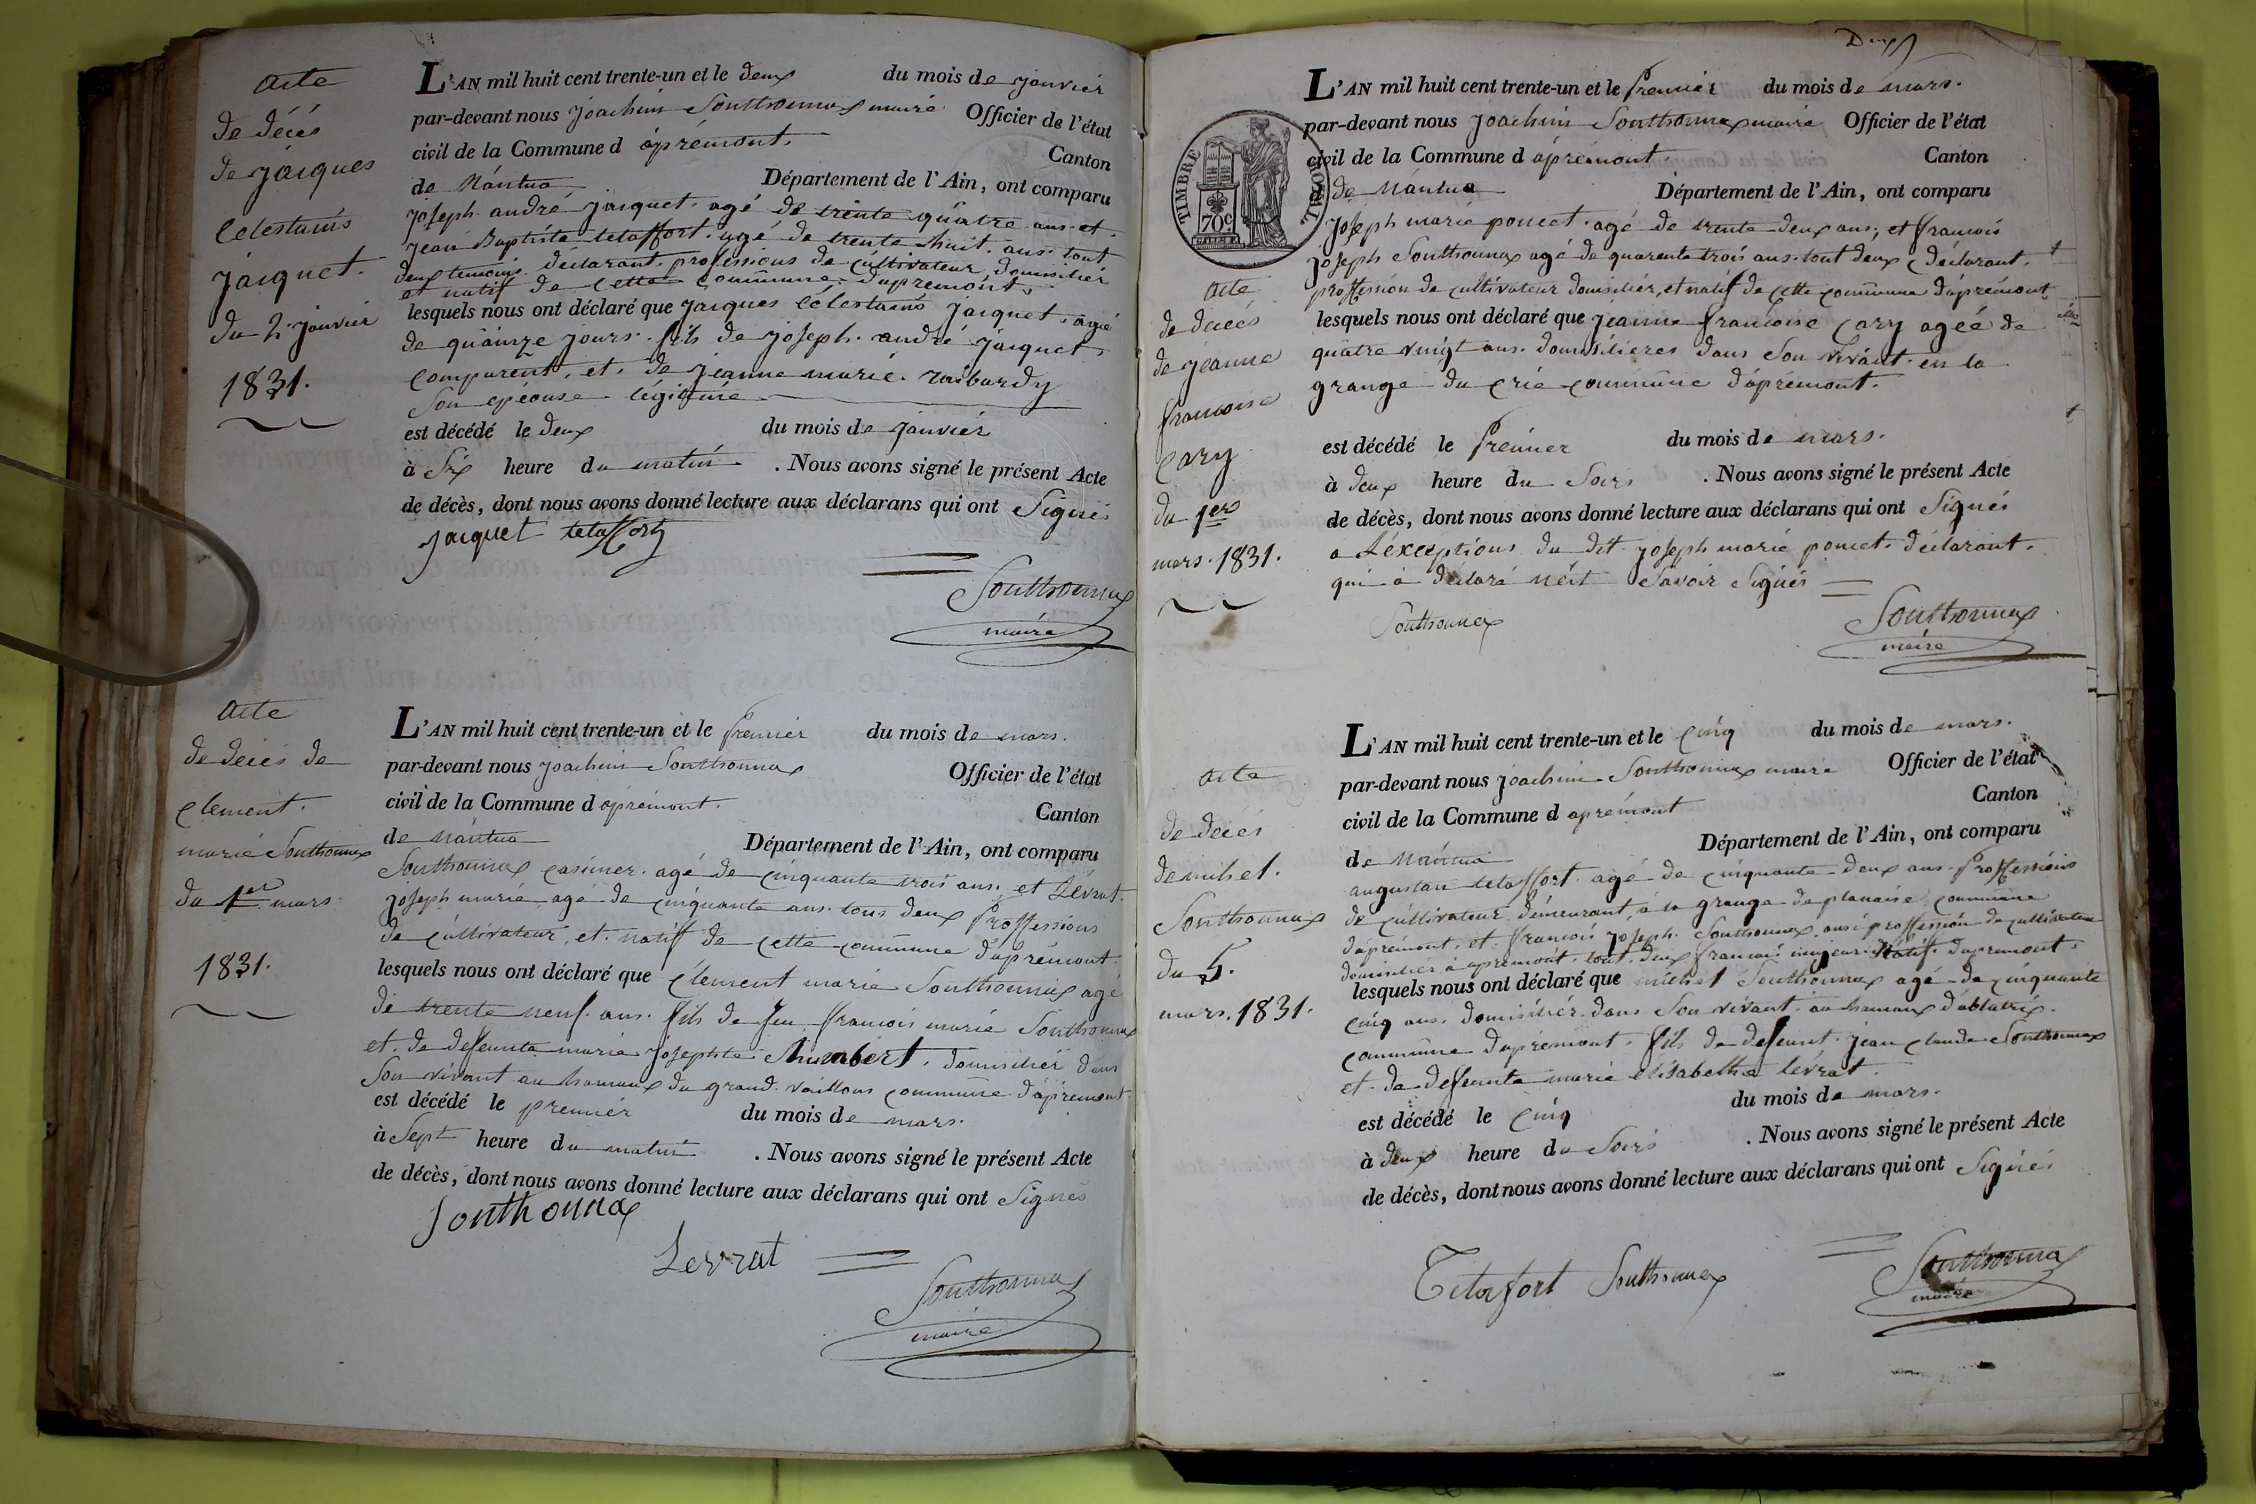 acte
de décés
de jacques
Celestains
jacquet.
du 2. janvier
1831.
L'AN mil huit cent trente-un et le deux du mois de janvier
par-devant nous joachim Southonnax maire Officier de l'état
civil de la Commune d'apremont. Canton
de Nantua Département de l'Ain, ont comparu
joseph andré jacquet. agé de trente quatre ans. et.
jean Baptiste tetaffort. agé de trente huit. ans. tout
deux temoins. déclarant. professions de cultivateur, domicilier
et natif de cette commune d'apremont.
lesquels nous ont déclaré que jacques Célestains jacquet. agé
de quainze jours. fils de joseph. andré jacquet
comparent. et. de jeanne marie.
Son épeouse légitime
est décédé le deux du mois de janvier
à Six heure du matin . Nous avons signé le présent Acte
de décès, dont nous avons donné lecture aux déclarans qui ont Signés
jacquet tetaffort
Southonnax
maire
acte
de décés de
clement.
marie Southonnax
du 1er mars.
1831.
L'AN mil huit cent trente-un et le premier du mois de mars.
par-devant nous joachim Southonnax Officier de l'état
civil de la Commune d'apremont. Canton
de Nantua Département de l'Ain, ont comparu
Southonnax casimer. agé de cinquante trois ans. et Lévrat.
joseph marie agé de cinquante ans. tous deux proffessions
de cultivateur, et. natiff de cette commune d'apremont.
lesquels nous ont déclaré que clement marie Southonnax agé
de trente neuf. ans. fils de feu. francois marie Southonnax
et. de defeunte marie josephte humbert. domicilier dans
Son vivant au hameaux du grand. vaillons commune d'apremont
est décédé le premier du mois de mars.
à Sept heure du matin . Nous avons signé le présent Acte
de décès, dont nous avons donné lecture aux déclarans qui ont Signés
Southonnax
Levrat
Southonnax
maire
Deux
TIMBRE ROYAL
70c
acte
de décés
de jeanne
francoise
Cary
du 1er
mars. 1831.
L'AN mil huit cent trente-un et le premier du mois de mars.
par-devant nous joachim Southonnax maire Officier de l'état
civil de la Commune d'apremont Canton
de Nantua Département de l'Ain, ont comparu
joseph marie poncet. agé de trente deux ans, et francois
joseph Southonnax agé de quarente trois ans. tout deux déclarant.
proffession de cultivateur domicilier, et natif de cette commune d'apremont
lesquels nous ont déclaré que jeanne francoise Cary agée de
quatre vingt ans. domicilieres dans Son vivant. en la
grange du crie commune d'apremont.
est décédé le premier du mois de mars.
à deux heure du Soirs . Nous avons signé le présent Acte
de décès, dont nous avons donné lecture aux déclarans qui ont Signés
a L'éxceptions du dit joseph marie poncet. déclarant.
qui à déclaré Savoir Signés
Southonnax
Southonnax
maire
acte
de décés
de mihel.
Southonnax
du 5.
mars. 1831.
L'AN mil huit cent trente-un et le cinq du mois de mars.
par-devant nous joachim Southonnax maire Officier de l'état
civil de la Commune d'apremont Canton
de Nantua Département de l'Ain, ont comparu
augustan tetaffort. agé de cinquante deux ans. proffessions
de cultivateur. demeurant, à la grange de planaise. commune
d'apremont. et. francois joseph. Southonnax. ausi proffession de cultivateur
domicilier à apremont. tout. deux francais majeur. natif. d'apremont.
lesquels nous ont déclaré que mihel Southonnax agé de cinquante
cinq ans. domicilier. dans Son vivant. au hameaux
commune d'apremont. fils de defeunt. jean claude Southonnax
et. de defeunte marie élisabetha levrat.
est décédé le cinq du mois de mars.
à deux heure du Soirs . Nous avons signé le présent Acte
de décès, dont nous avons donné lecture aux déclarans qui ont Signés
Tetafort Southonnax
Southonnax
maire